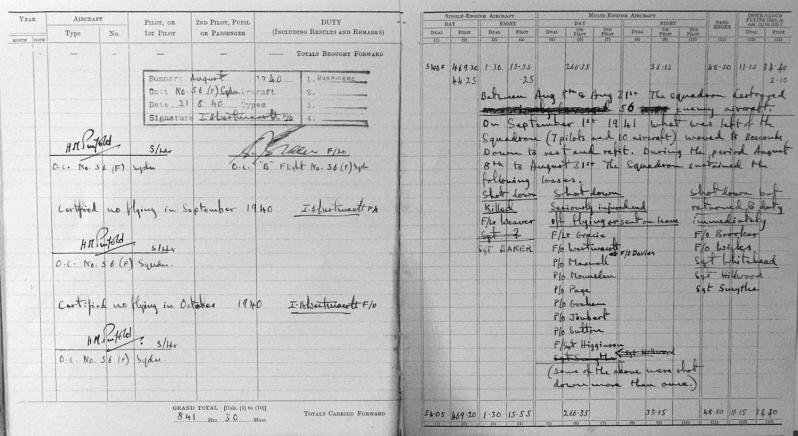 YEAR
AIRCRAFT
PILOT, OR
1ST PILOT
2ND PILOT, PUPIL
OR PASSENGER
DUTY
(INCLUDING RESULTS AND REMARKS)
MONTH DATE Type No.
TOTALS BROUGHT FORWARD
Summary August 1940
Unit No. 56 (F) Sqdn Aircraft
Date 31 8 40 Types
Signature F/O
1. HURRICANE
2.
3.
4.
S/Ldr
F/Lt
O.C. No. 56 (F) Sqdn
O.C. "B" Flight No. 56 (F) Sqdn
Certified no flying in September 1940
S/Ldr
O.C. No. 56 (F) Sqdn
Certified no flying in October 1940 F/O
S/Ldr
O.C. No. 56 (F) Sqdn
GRAND TOTAL [Cols. (1) to (10)]
841 Hrs. 30 Mins.
TOTALS CARRIED FORWARD
SINGLE-ENGINE AIRCRAFT
MULTI-ENGINE AIRCRAFT
DAY NIGHT DAY NIGHT
DUAL PILOT DUAL PILOT DUAL 1ST PILOT 2ND PILOT DUAL 1ST PILOT 2ND PILOT
(1) (2) (3) (4) (5) (6) (7) (8) (9) (10) (11) (12) (13)
469.20 1.30 15.55 266.35 48.50 11.15
44.25 .25 2.10
Between Aug 8th & Aug 31st The squadron destroyed
56 enemy aircraft.
On September 1st 1941 what was left of the
Squadron (7 pilots and 10 aircraft) moved to Boscombe
Down to rest and refit. During the period August
8th to August 31st The Squadron sustained the
following losses.
Shot down Shot down Shot down but
Killed Seriously injured and returned to duty
F/Lt Weaver off flying or sent on leave immediately
Sgt BAKER F/Lt Gracie F/O Brooker
F/O Westmacott F/O Davies F/O Wicks
P/O Maxwell Sgt Whitehead
P/O Mounsden Sgt Hillwood
P/O Page Sgt Smythe
P/O Graham
P/O Joubert
P/O Sutton
F/Sgt Higginson
Sgt Smythe Sgt Hillwood
(Some of the above were shot
down more than once.)
54.05 469.20 1.30 15.55 266.35 48.50 11.15
(1) (2) (3) (4) (5) (6) (7) (8) (9) (10) (11) (12) (13)